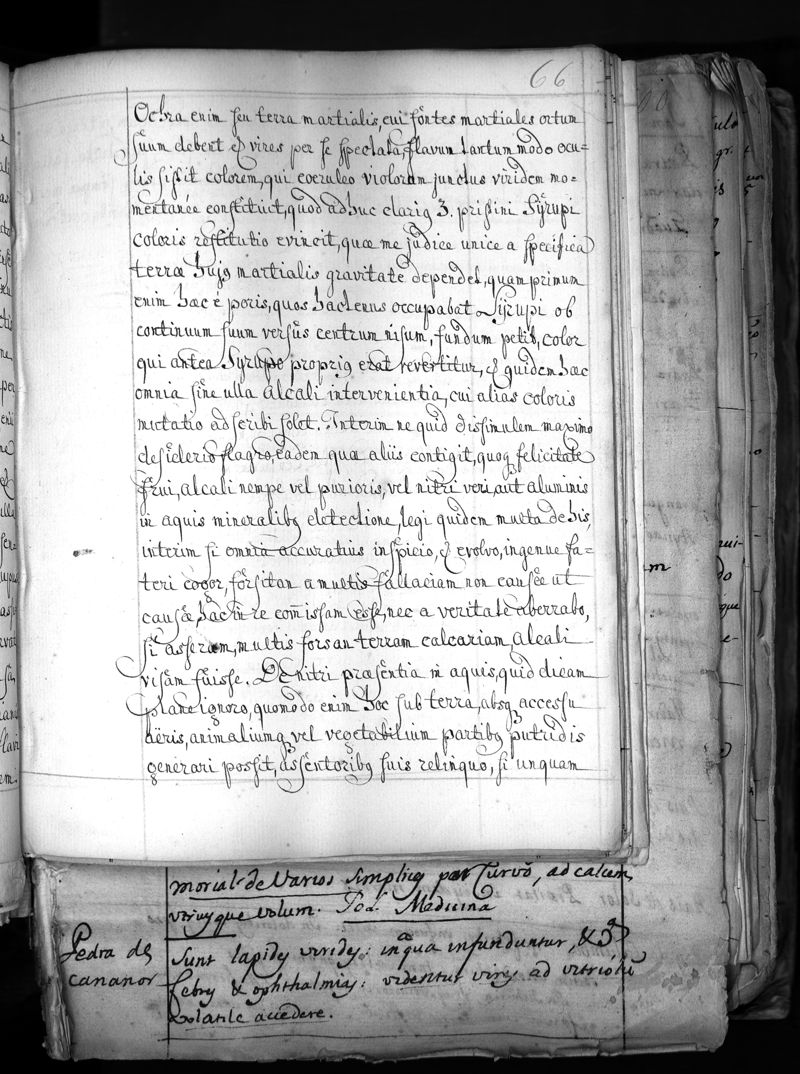 66
Ochra enim seu terra martialis, cui fontes martiales ortum
suum debent & vires per se spectata, flavum tantum modo ocu=
lis sistit colorem, qui coeruleo violorum junctus viridem mo-
mentanée constituit, quod adhuc clarig 3. pristini Syrupi
coloris restitutio evincit, quæ me judice unice a specifica
terræ hujg martialis gravitate dependet, quam primum
enim hæc é poris, quos hactenus occupabat Syrupi ob
continuum suum versus centrum nisum, fundum petit, color
qui antea Syrupo proprig erat revertitur, & quidem hæc
omnia sine ulla alcali intervenientia, cui alias coloris
mutatio adscribi solet. Interim ne quid dissimulem maximo
desiderio flagro, eadem quæ aliis contigit, quoq felicitate
frui, alcali nempe vel purioris, vel nitri veri, aut aluminis
in aquis mineralibg detectione, legi quidem multa de his,
interim si omnia accuratius inspicio, & evolvo, ingenue fa=
teri cogor, forsitan a multis fallaciam non causæ ut
causæ, hac in re comissam esse, nec a veritate aberrabo,
si asseram, multis forsan terram calcariam, alcali
visam fuisse. De nitri præsentia in aquis, quid dicam
plane ignoro, quomodo enim hoc sub terra, absq accessu
aëris, animaliumq vel vegetabilium partibg putridis
generari possit, assentoribg suis relinquo, si unquam
morial de Varios simplicg por Curvo, ad calcem,
utriusque volum. Medicina
Pedra de
cananor
Sunt lapidg viridg: in aqua infunduntur, &
febrg & ophthalmig: videntur virg ad vitriolũ
volatile accedere.